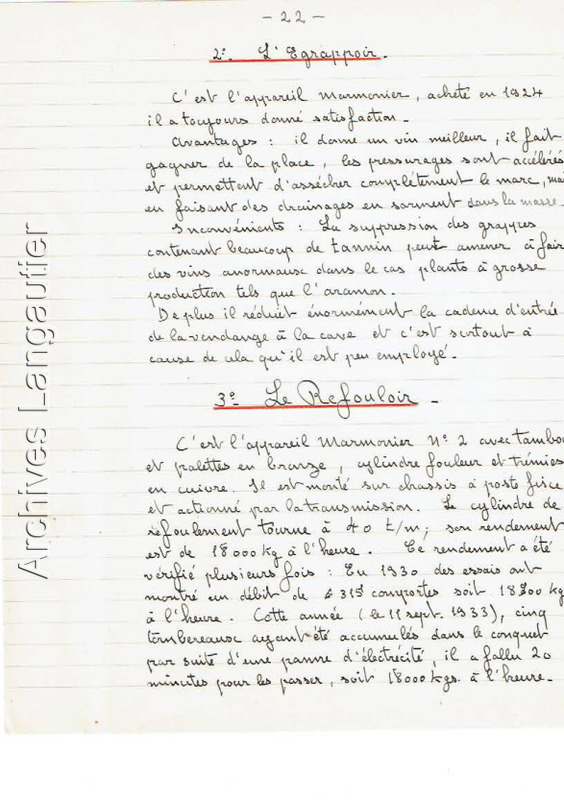 - 22 -
2º. L'Egrappoir.
C'est l'appareil Marmonier, acheté en 1924
il a toujours donné satisfaction.
Avantages : il donne un vin meilleur, il fait
gagner de la place, les pressurages sont accélérés
et permettent d'assécher complètement le marc, mai
en faisant des drainages en sarment dans la masse.
Inconvénients : La suppression des grappes
contenant beaucoup de tannin peut amener à fair
des vins anormaux dans le cas plants à grosse
production tels que l'aramon.
De plus il réduit énormément la cadence d'entrée
de la vendange à la cave et c'est surtout à
cause de cela qu'il est peu employé.
3º Le Refouloir -
C'est l'appareil Marmonier Nº 2 avec tambou
et palettes en bronze, cylindre fouleur et trémies
en cuivre. Il est monté sur chassis à poste fixe
et actionné par la transmission. Le cylindre de
refoulement tourne à 40 t/m; son rendement
est de 18000 kg à l'heure. Ce rendement a été
vérifié plusieurs fois : En 1930 des essais ont
montré un débit de 315 comportes soit 18900 kg
à l'heure. Cette année (le 11 sept. 1933), cinq
tombereaux ayant été accumulés dans le conquet
par suite d'une panne d'électrécité, il a fallu 20
minutes pour les passer, soit 18000 kgs. à l'heure.
Archives Langautier